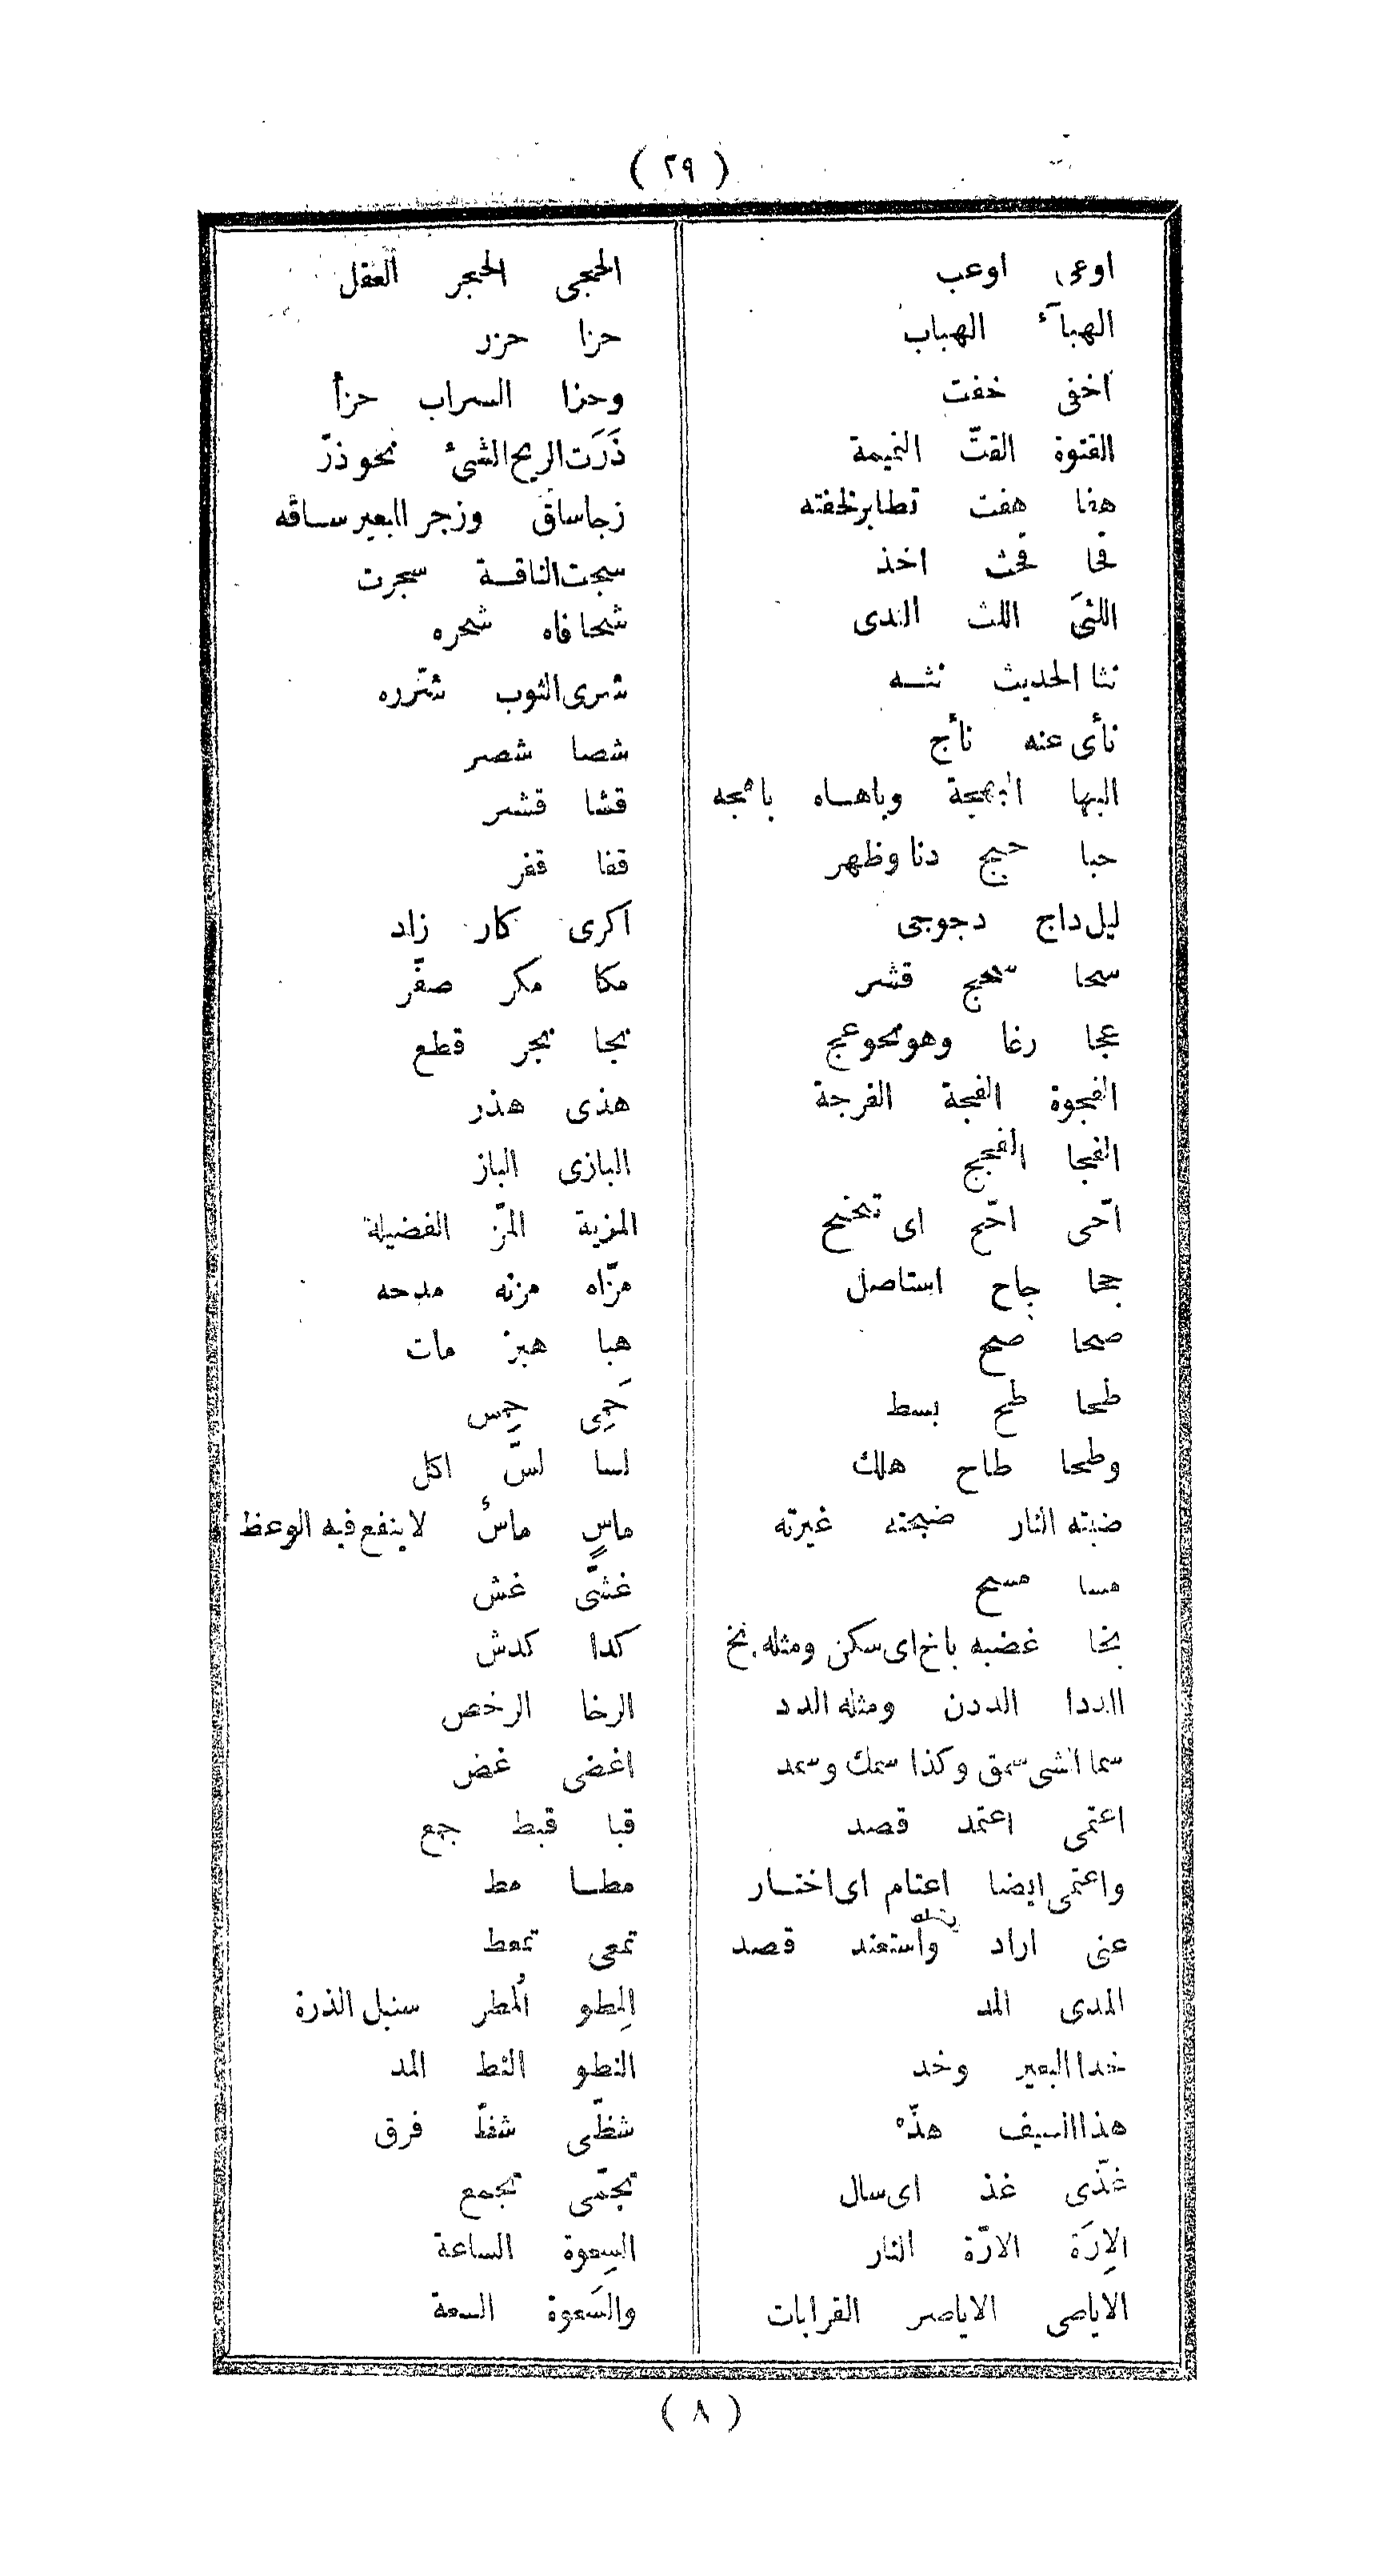 ( ٢٩ )
اوعى اوعب
الهبآء الهباب
اخفى خفت
القتوة القتّ النميمة
هفا هفت تطاير لخفته
قحا قحث اخذ
اللثىَ اللث الندى
نثا الحديث نثـه
نأى عنه نأج
البها البهجة وباهـاه باهجه
حبا حبج دنا وظهر
ليل داج دجوجى
سحا سحج قشر
عجا رغا وهو نحو عج
الفجوة الفجة الفرجة
الفجا الفجج
اَحّى احّح اى تنحنح
جحا جاح استاصل
صحا صح
طحا طح بسط
وطحا طاح هلك
ضبته النار ضبحته غيرته
مسا مسح
بخا غضبه باخ اى سكن ومثله بخ
الددا الددن ومثله الدد
سما الشى سمق وكذا سمك وسمد
اعتمى اعتمد قصد
واعتمى ايضا اعتام اى اختـار
عنى اراد واستعند قصد
المدى المد
خدا البعير وخد
هذا السيف هذّه
غذّى غذ اى سال
الاِرَة الارّة النار
الاياصى الاياصر القرابات
الحجى الحجر العقل
حزا حزر
وحزا السراب حزأ
ذَرَت الريح الشئ نحو ذرّ
زجا ساق وزجر البعير سـاقه
سجت الناقـة سجرت
شحا فاه شحره
شرى الثوب شرّره
شصا شصر
قشا قشر
قفا قفر
اكرى كار زاد
مكا مكر صفّر
نجا نجر قطع
هذى هذر
البازى الباز
المزية المزّ الفضيلة
مزّاه مزنه مدحه
هبا هبز مات
حَمِى حمِس
لسا لسّ اكل
ماسٍ ماسٌ لا ينفع فيه الوعظ
غشّى غش
كدا كدش
الرخا الرخص
اغضى غض
قبا قبط جمع
مطـا مط
تمعى تمعط
المِطو المُطر سنبل الذرة
النطو النط المد
شظّى شظّ فرق
تجمّى تجمع
السِعوة الساعة
والسَعوة السعة
( ٨ )